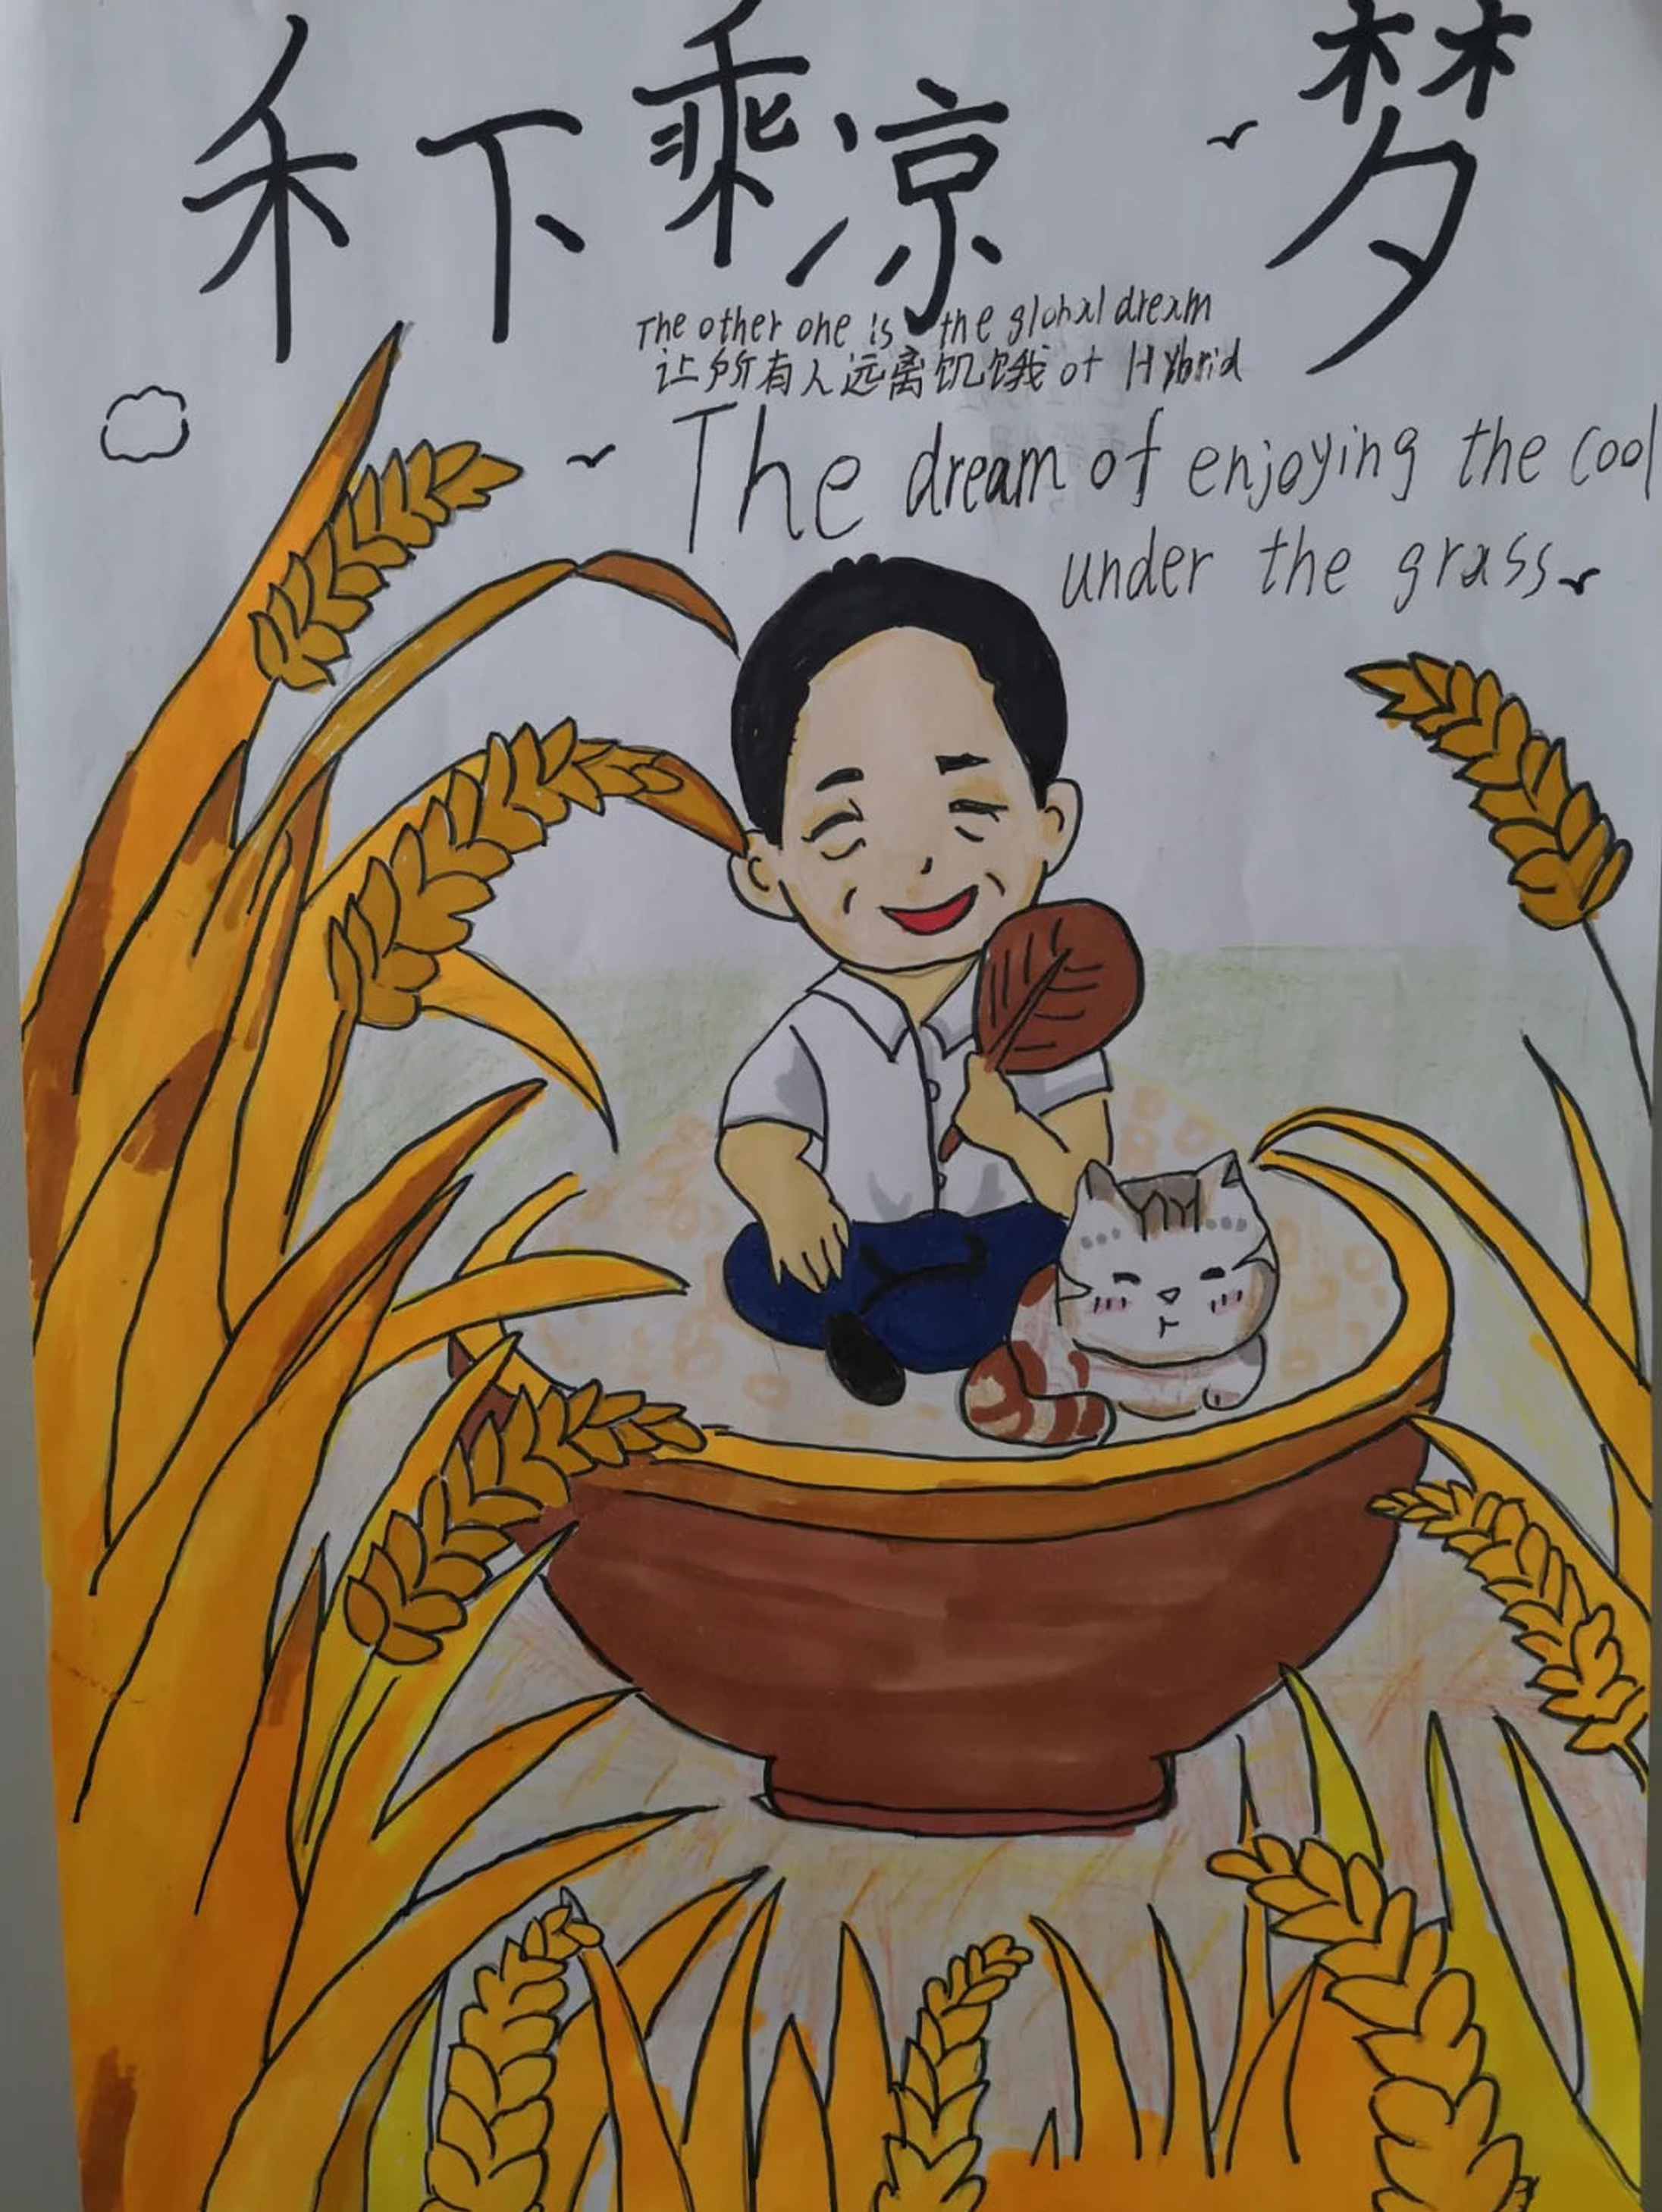 禾下乘凉 梦
The other one is the global dream
让所有人远离饥饿 of Hybrid
The dream of enjoying the cool
under the grass